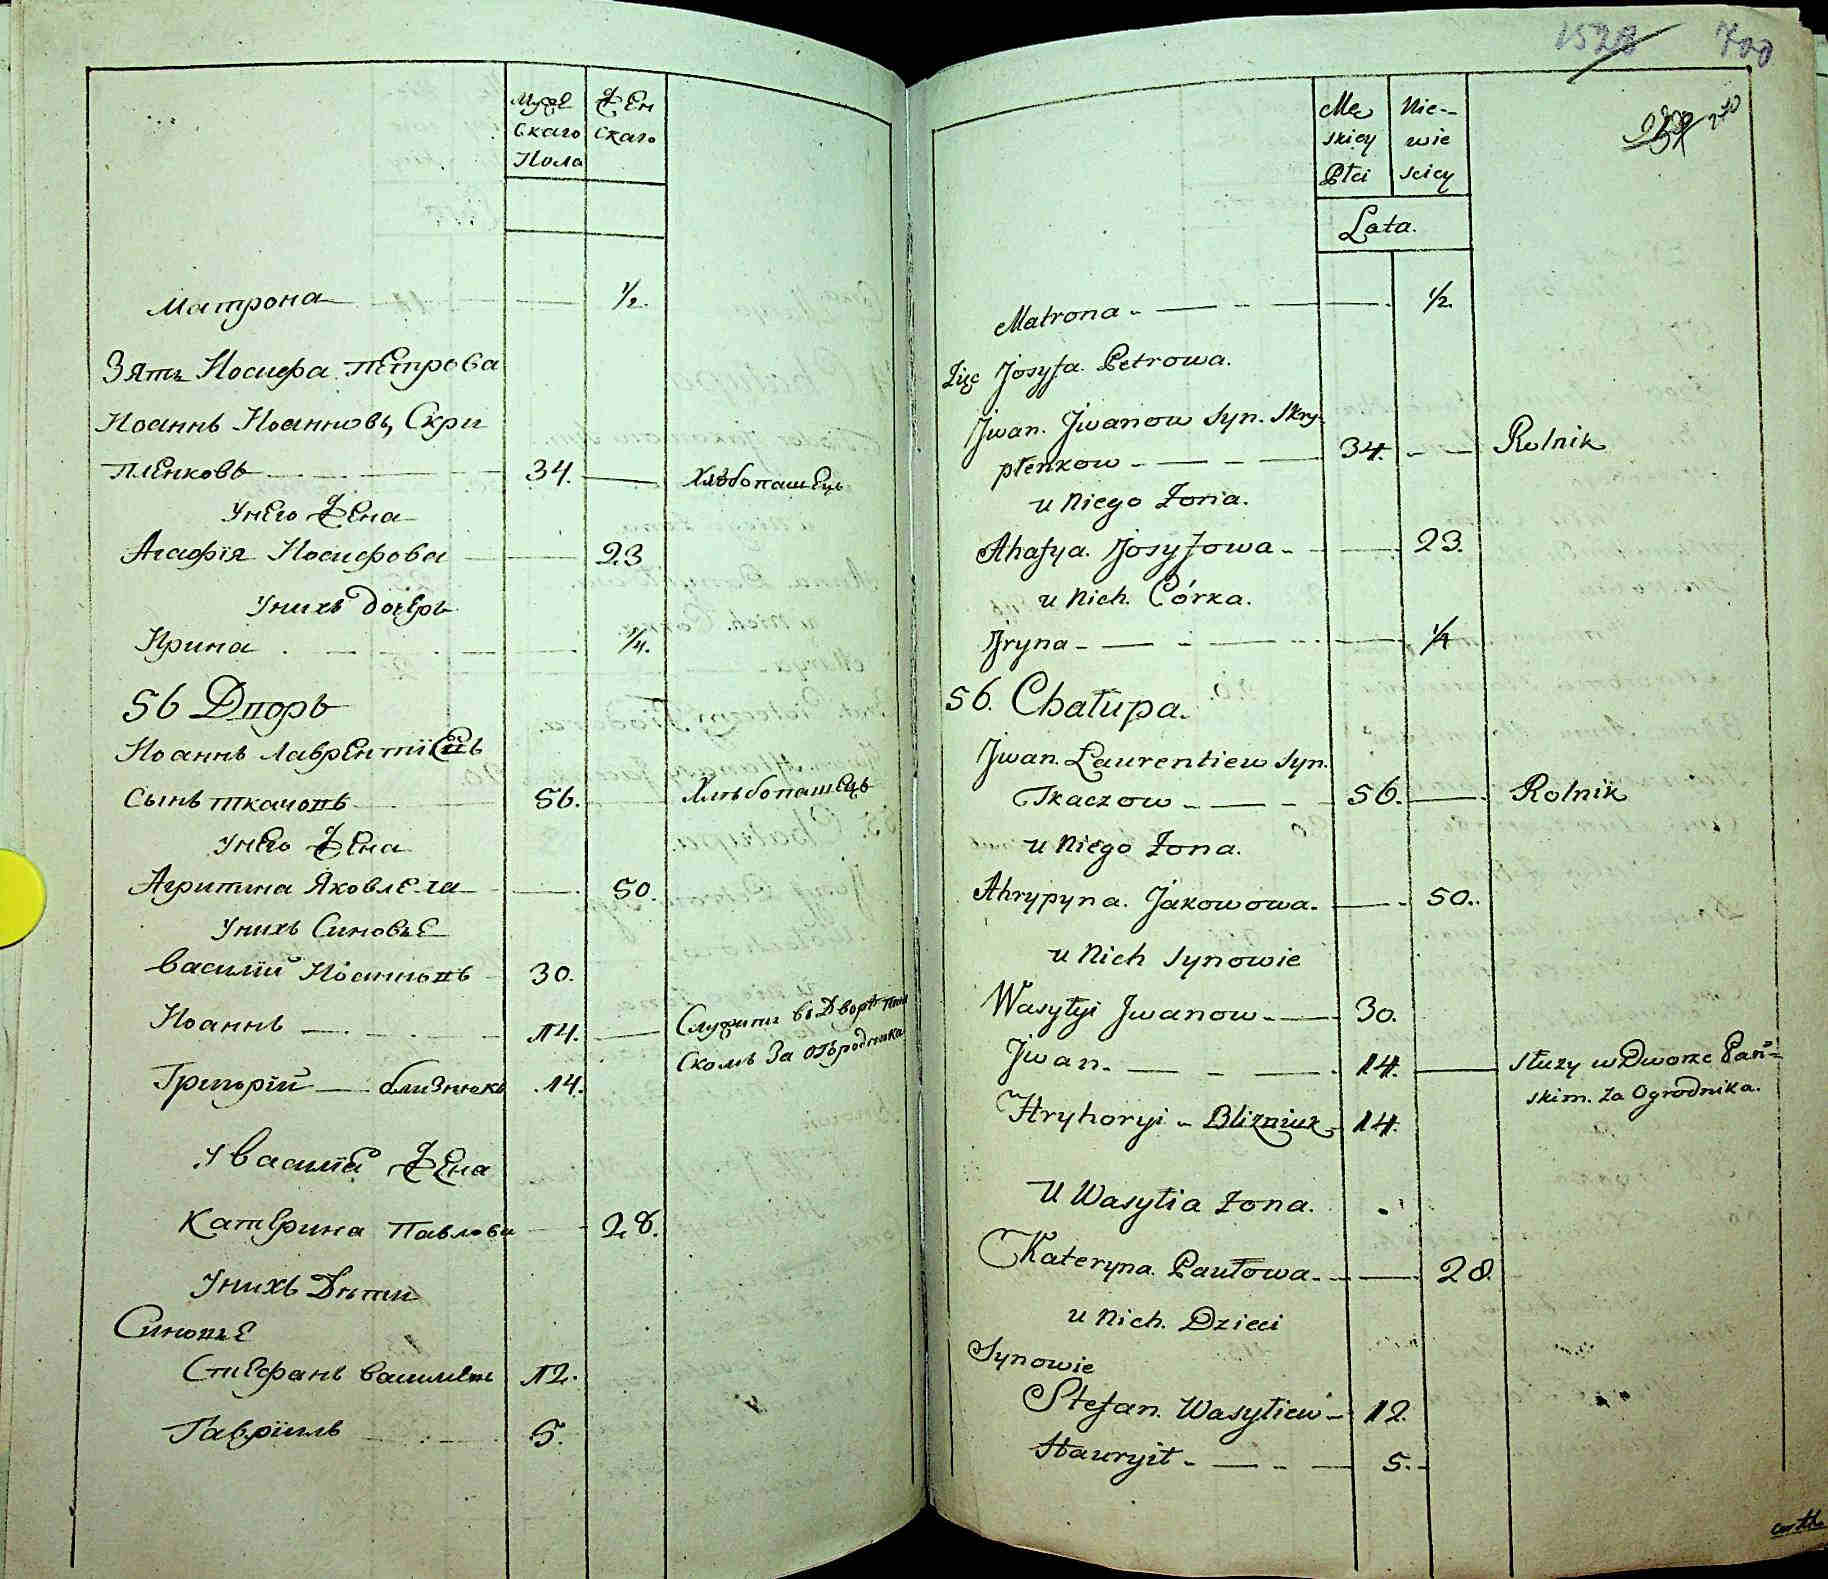 Муже
Скаго
Пола
Жен
Скаго
Матрона 1/2.
Зять Иосифа Петрова
Иоаннъ Иоанновъ, Скри
пленковъ 34. Хлѣбопашецъ
Унего Жена
Агафїя Иосифова 23
Унихъ дочерь
Ирина 1/4.
56 Дворъ
Иоаннъ Лаврентїевъ
Сынъ Ткачовъ 56. Хлѣбопашецъ
Унего Жена
Агрипина Яковлева 50.
Унихъ Синовье
Василїй Иоанновъ 30.
Иоаннъ 14. Служитъ въ Дворѣ пан
Скомъ За огородника
Григорїй близнюкъ 14.
У Василїа Жена
Катерина Павлова 28.
Унихъ Дѣти
Синовье
Стефанъ Васильев 12.
Гаврїилъ 5.
1528 700
240
Mę
skiey
Płci
Nie-
wie
sciey
Lata.
Matrona 1/2.
Zięc Josyfa Petrowa.
Jwan. Jwanow Syn. Skry-
płenkow 34. Rolnik
u Niego Zona.
Ahafya. Josyfowa 23.
u Nich. Córka.
Jryna 1/4
56. Chałupa.
Jwan. Laurentiew Syn.
Tkaczow 56. Rolnik
u Niego Zona.
Ahrypyna. Jakowowa. 50.
u Nich Synowie
Wasyłyi Jwanow 30.
Jwan. 14. Służy w Dworze Pań=
skim. za Ogrodnika.
Hryhoryi Blizniuk 14.
U Wasylia Zona.
Kateryna. Pawłowa. 28.
u Nich. Dzieci
Synowie
Stefan. Wasyliew 12.
Hauryił 5.